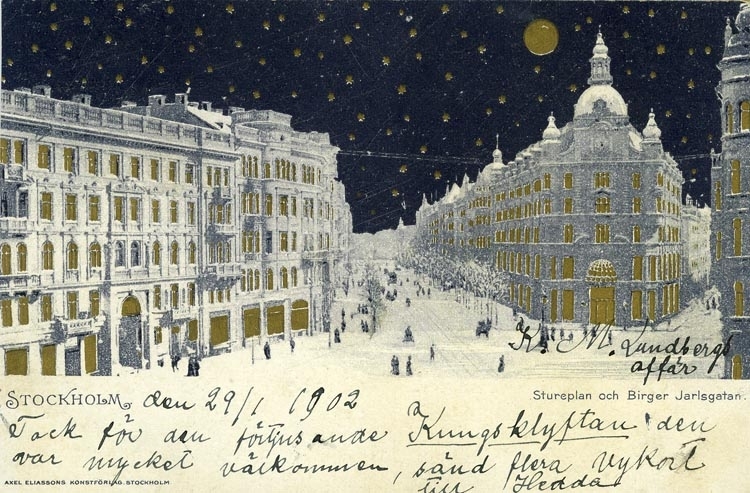 K. M. Lundbergs
affär
Stureplan och Birger Jarlsgatan.
STOCKHOLM den 29/1 1902
Tack för den förtjusande Kungsklyftan den
var mycket välkommen, sänd flera vykort
till Hedda
AXEL ELIASSONS KONSTFÖRLAG. STOCKHOLM